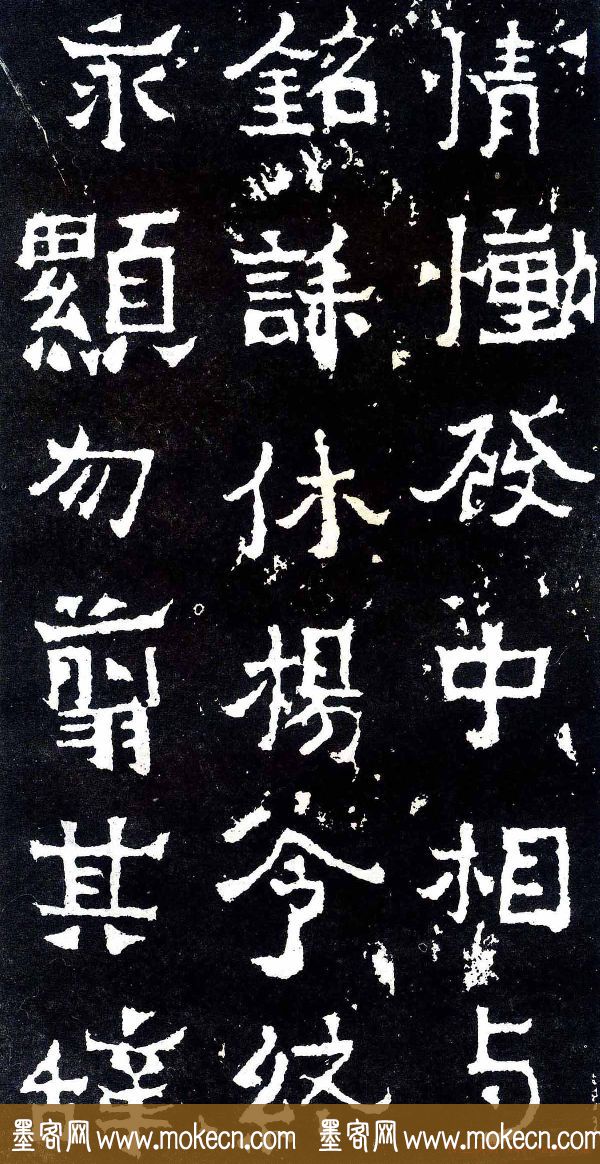 情慟發中相与
銘誄休楊令終
永顯勿翦其辭
墨客网 www.mokecn.com 墨客网 www.mokecn.com